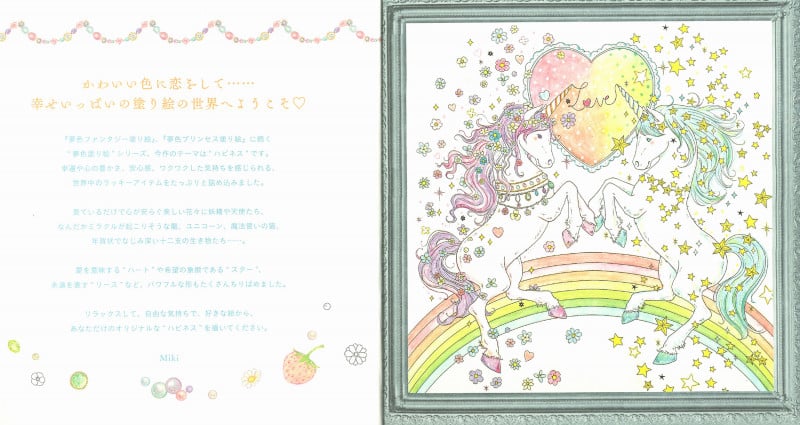 かわいい色に恋をして……
幸せいっぱいの塗り絵の世界へようこそ♡
『夢色ファンタジー塗り絵』、『夢色プリンセス塗り絵』に続く
“夢色塗り絵”シリーズ、今作のテーマは“ハピネス”です。
幸運や心の豊かさ、安心感、ワクワクした気持ちを感じられる、
世界中のラッキーアイテムをたっぷりと詰め込みました。
見ているだけで心が安らぐ美しい花々に妖精や天使たち、
なんだかミラクルが起こりそうな龍、ユニコーン、魔法使いの猫、
年賀状でなじみ深い十二支の生き物たち――。
愛を意味する“ハート”や希望の象徴である“スター”、
永遠を表す“リース”など、パワフルな形もたくさんちりばめました。
リラックスして、自由な気持ちで、好きな絵から、
あなただけのオリジナルな“ハピネス”を描いてください。
Miki
Love